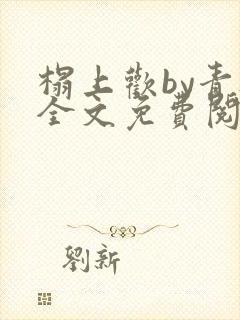 榻上歡by青
全文免費閱
劉新